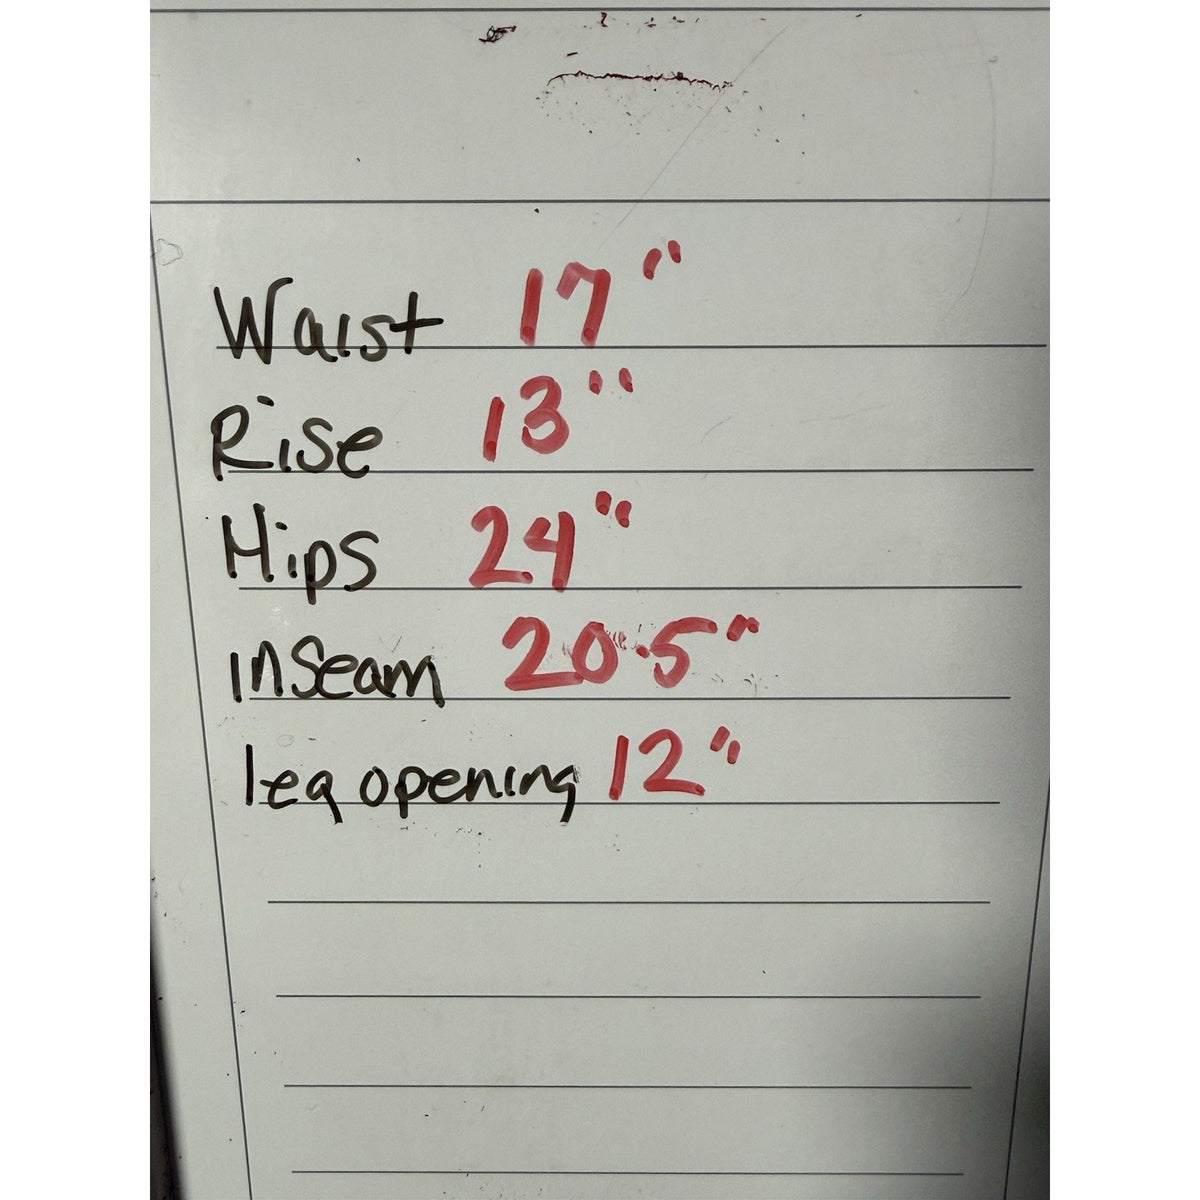 Waist 17"
Rise 13"
Hips 24"
inseam 20.5"
leg opening 12"